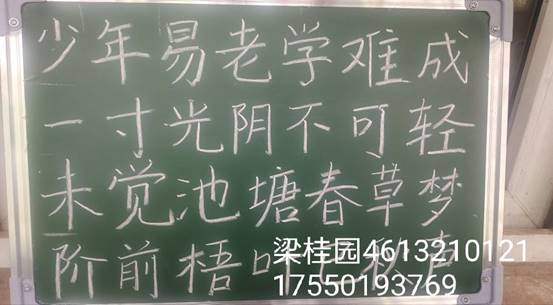 少年易老学难成
一寸光阴不可轻
未觉池塘春草梦
阶前梧叶已秋声
梁桂园4613210121
17550193769